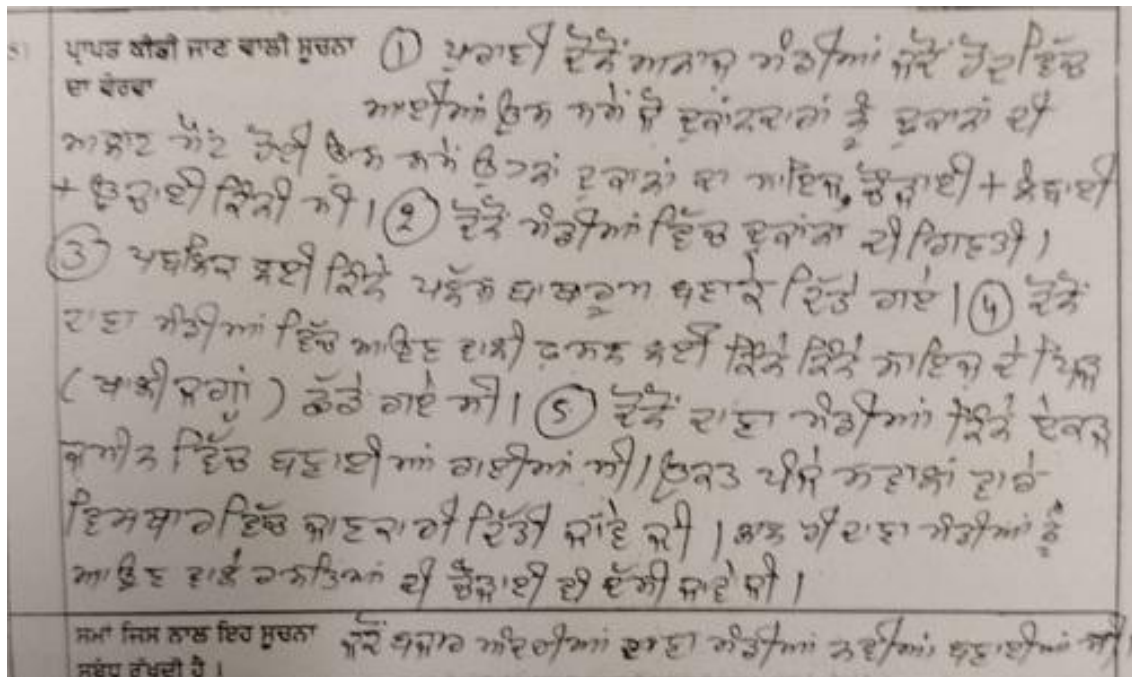 5) ਪ੍ਰਾਪਤ ਕੀਤੀ ਜਾਣ ਵਾਲੀ ਸੂਚਨਾ ① ਪੁਰਾਣੀ ਦੋਨੋਂ ਅਨਾਜ ਮੰਡੀਆਂ ਜਦੋਂ ਹੋਂਦ ਵਿੱਚ
ਦਾ ਵੇਰਵਾ ਆਈਆਂ ਉਸ ਸਮੇਂ ਜੋ ਦੁਕਾਂਨਦਾਰਾਂ ਨੂੰ ਦੁਕਾਨਾਂ ਦੀ
ਅਲਾਟ ਮੈਂਟ ਹੋਈ ਉਸ ਸਮੇਂ ਉਹਨਾਂ ਦੁਕਾਨਾਂ ਦਾ ਸਾਇਜ ਚੌੜਾਈ + ਲੰਬਾਈ
+ ਉਚਾਈ ਕਿੰਨੀ ਸੀ । ② ਦੋਨੋਂ ਮੰਡੀਆਂ ਵਿੱਚ ਦੁਕਾਂਨਾਂ ਦੀ ਗਿਣਤੀ ।
③ ਪਬਲਿਕ ਲਈ ਕਿੰਨੇ ਪਬਲਿਕ ਬਾਥਰੂਮ ਬਣਾਕੇ ਦਿੱਤੇ ਗਏ । ④ ਦੋਨੋਂ
ਦਾਣਾ ਮੰਡੀਆਂ ਵਿੱਚ ਆਉਣ ਵਾਲੀ ਫ਼ਸਲ ਲਈ ਕਿੰਨੇ ਕਿੰਨੇ ਸਾਇਜ ਦੇ ਪਿੜ
( ਖਾਲੀ ਜਗਾਂ ) ਛੱਡੇ ਗਏ ਸੀ । ⑤ ਦੋਨੋਂ ਦਾਣਾ ਮੰਡੀਆਂ ਕਿੰਨੇ ਏਕੜ
ਜਮੀਨ ਵਿੱਚ ਬਣਾਈਆਂ ਗਈਆਂ ਸੀ । ਉਕਤ ਪੰਜੇ ਸਵਾਲਾਂ ਵਾਰੇ
ਵਿਸਥਾਰ ਵਿੱਚ ਜਾਣਕਾਰੀ ਦਿੱਤੀ ਜਾਂਵੇ ਜੀ । ਨਾਲ ਹੀ ਦਾਣਾ ਮੰਡੀਆਂ ਨੂੰ
ਆਉਣ ਵਾਲੇ ਰਸਤਿਆਂ ਦੀ ਚੌੜਾਈ ਵੀ ਦੱਸੀ ਜਾਵੇ ਜੀ ।
ਸਮਾਂ ਜਿਸ ਨਾਲ ਇਹ ਸੂਚਨਾ ਜਦੋਂ ਬਜਾਰ ਅੰਦਰੀਆਂ ਦਾਣਾ ਮੰਡੀਆਂ ਨਵੀਆਂ ਬਣਾਈਆਂ ਸੀ
ਸਬੰਧ ਰੱਖਦੀ ਹੈ ।